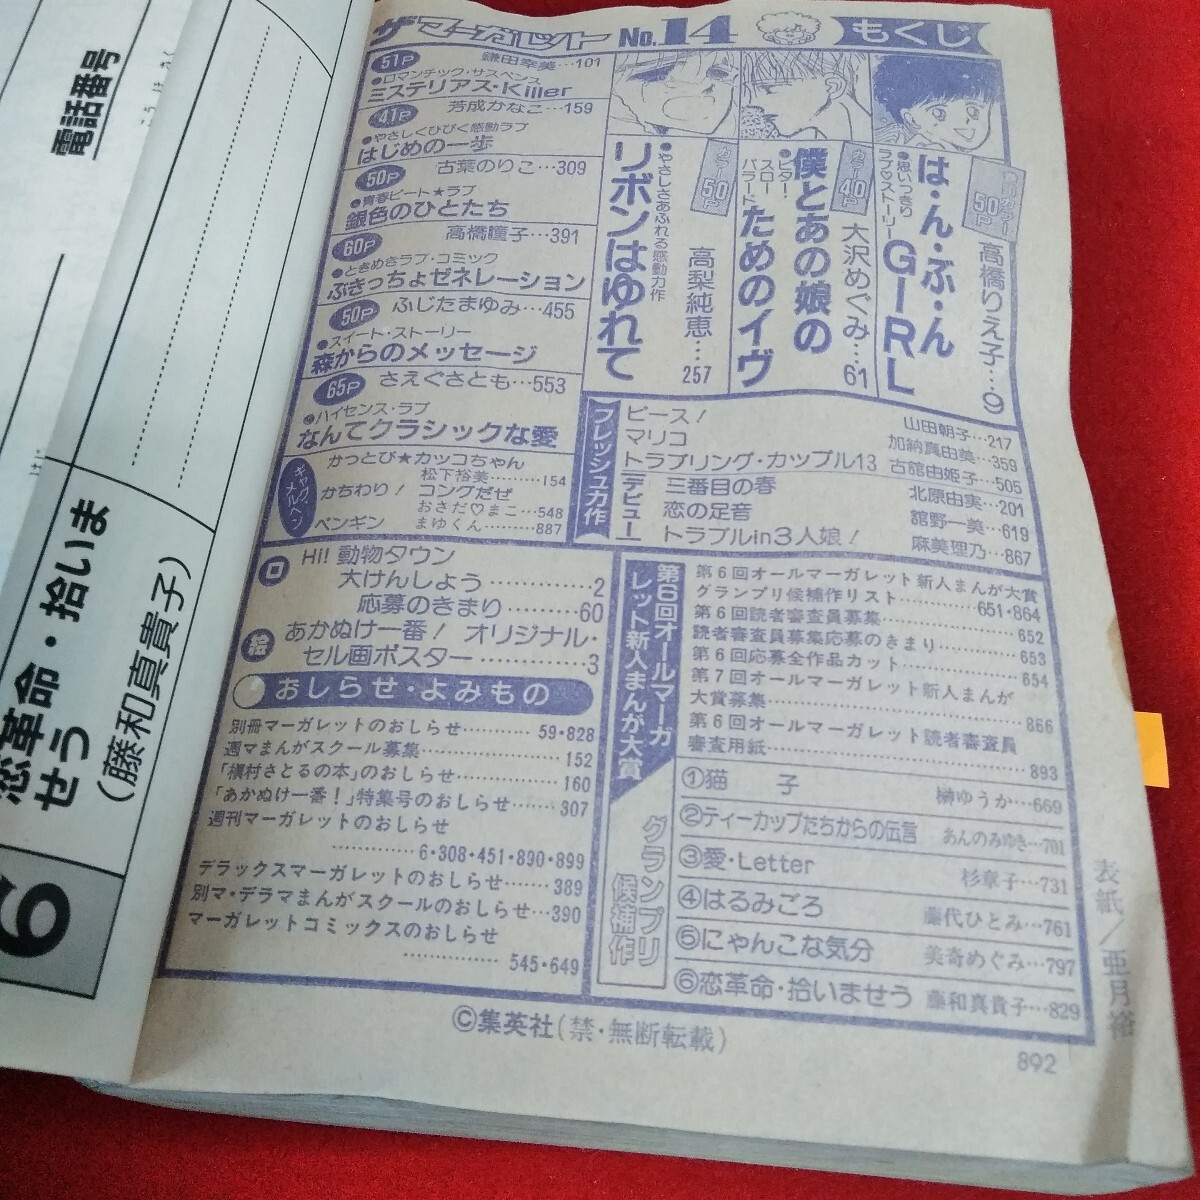 ザ マーガレット No.14 もくじ
巻頭カラー50P
高橋りえ子…9
●思いっきりラブ♡ストーリー
は・ん・ぶ・ん GIRL
カラー40P
大沢めぐみ…61
●ビタースローバラード
僕とあの娘の
ためのイヴ
カラー50P
高梨純恵…257
●やさしさあふれる感動力作
リボンはゆれて
51P 鎌田幸美…101
●ロマンチック・サスペンス
ミステリアス・Killer
41P 芳成かなこ…159
●やさしくひびく感動ラブ
はじめの一歩
50P 古葉のりこ…309
●青春ビート★ラブ
銀色のひとたち
60P 高橋瞳子…391
●ときめきラブ・コミック
ぶきっちょゼネレーション
50P ふじたまゆみ…455
●スイート・ストーリー
森からのメッセージ
65P さえぐさとも…553
●ハイセンス・ラブ
なんてクラシックな愛
ギャグメルヘン
かっとび★カッコちゃん
松下裕美…154
かちわり! コングだぜ
おさだ♡まこ…548
ペンギン まゆくん…887
フレッシュ力作
ピース! 山田朝子…217
マリコ 加納真由美…359
トラブリング・カップル13 古舘由姫子…505
デビュー
三番目の春 北原由実…201
恋の足音 舘野一美…619
トラブルin3人娘! 麻美理乃…867
口絵
Hi! 動物タウン
大けんしょう…2
応募のきまり…60
あかぬけ一番! オリジナル・
セル画ポスター…3
おしらせ・よみもの
別冊マーガレットのおしらせ…59・828
週マまんがスクール募集…152
「槇村さとるの本」のおしらせ…160
「あかぬけ一番!」特集号のおしらせ…307
週刊マーガレットのおしらせ
…6・308・451・890・899
デラックスマーガレットのおしらせ…389
別マ・デラマまんがスクールのおしらせ…390
マーガレットコミックスのおしらせ
…545・649
第6回オールマーガレット新人まんが大賞
第6回オールマーガレット新人まんが大賞
グランプリ候補作リスト…651・864
第6回読者審査員募集…652
読者審査員募集応募のきまり…653
第6回応募全作品カット…654
第7回オールマーガレット新人まんが
大賞募集…866
第6回オールマーガレット読者審査員
審査用紙…893
グランプリ候補作
①猫 子 榊ゆうか…669
②ティーカップたちからの伝言 あんのみゆき…701
③愛・Letter 杉章子…731
④はるみごろ 藤代ひとみ…761
⑤にゃんこな気分 美奇めぐみ…797
⑥恋革命・拾いませう 藤和真貴子…829
表紙/亜月裕
©集英社(禁・無断転載)
892
電話番号
恋革命・拾いま
せう
(藤和真貴子)
6